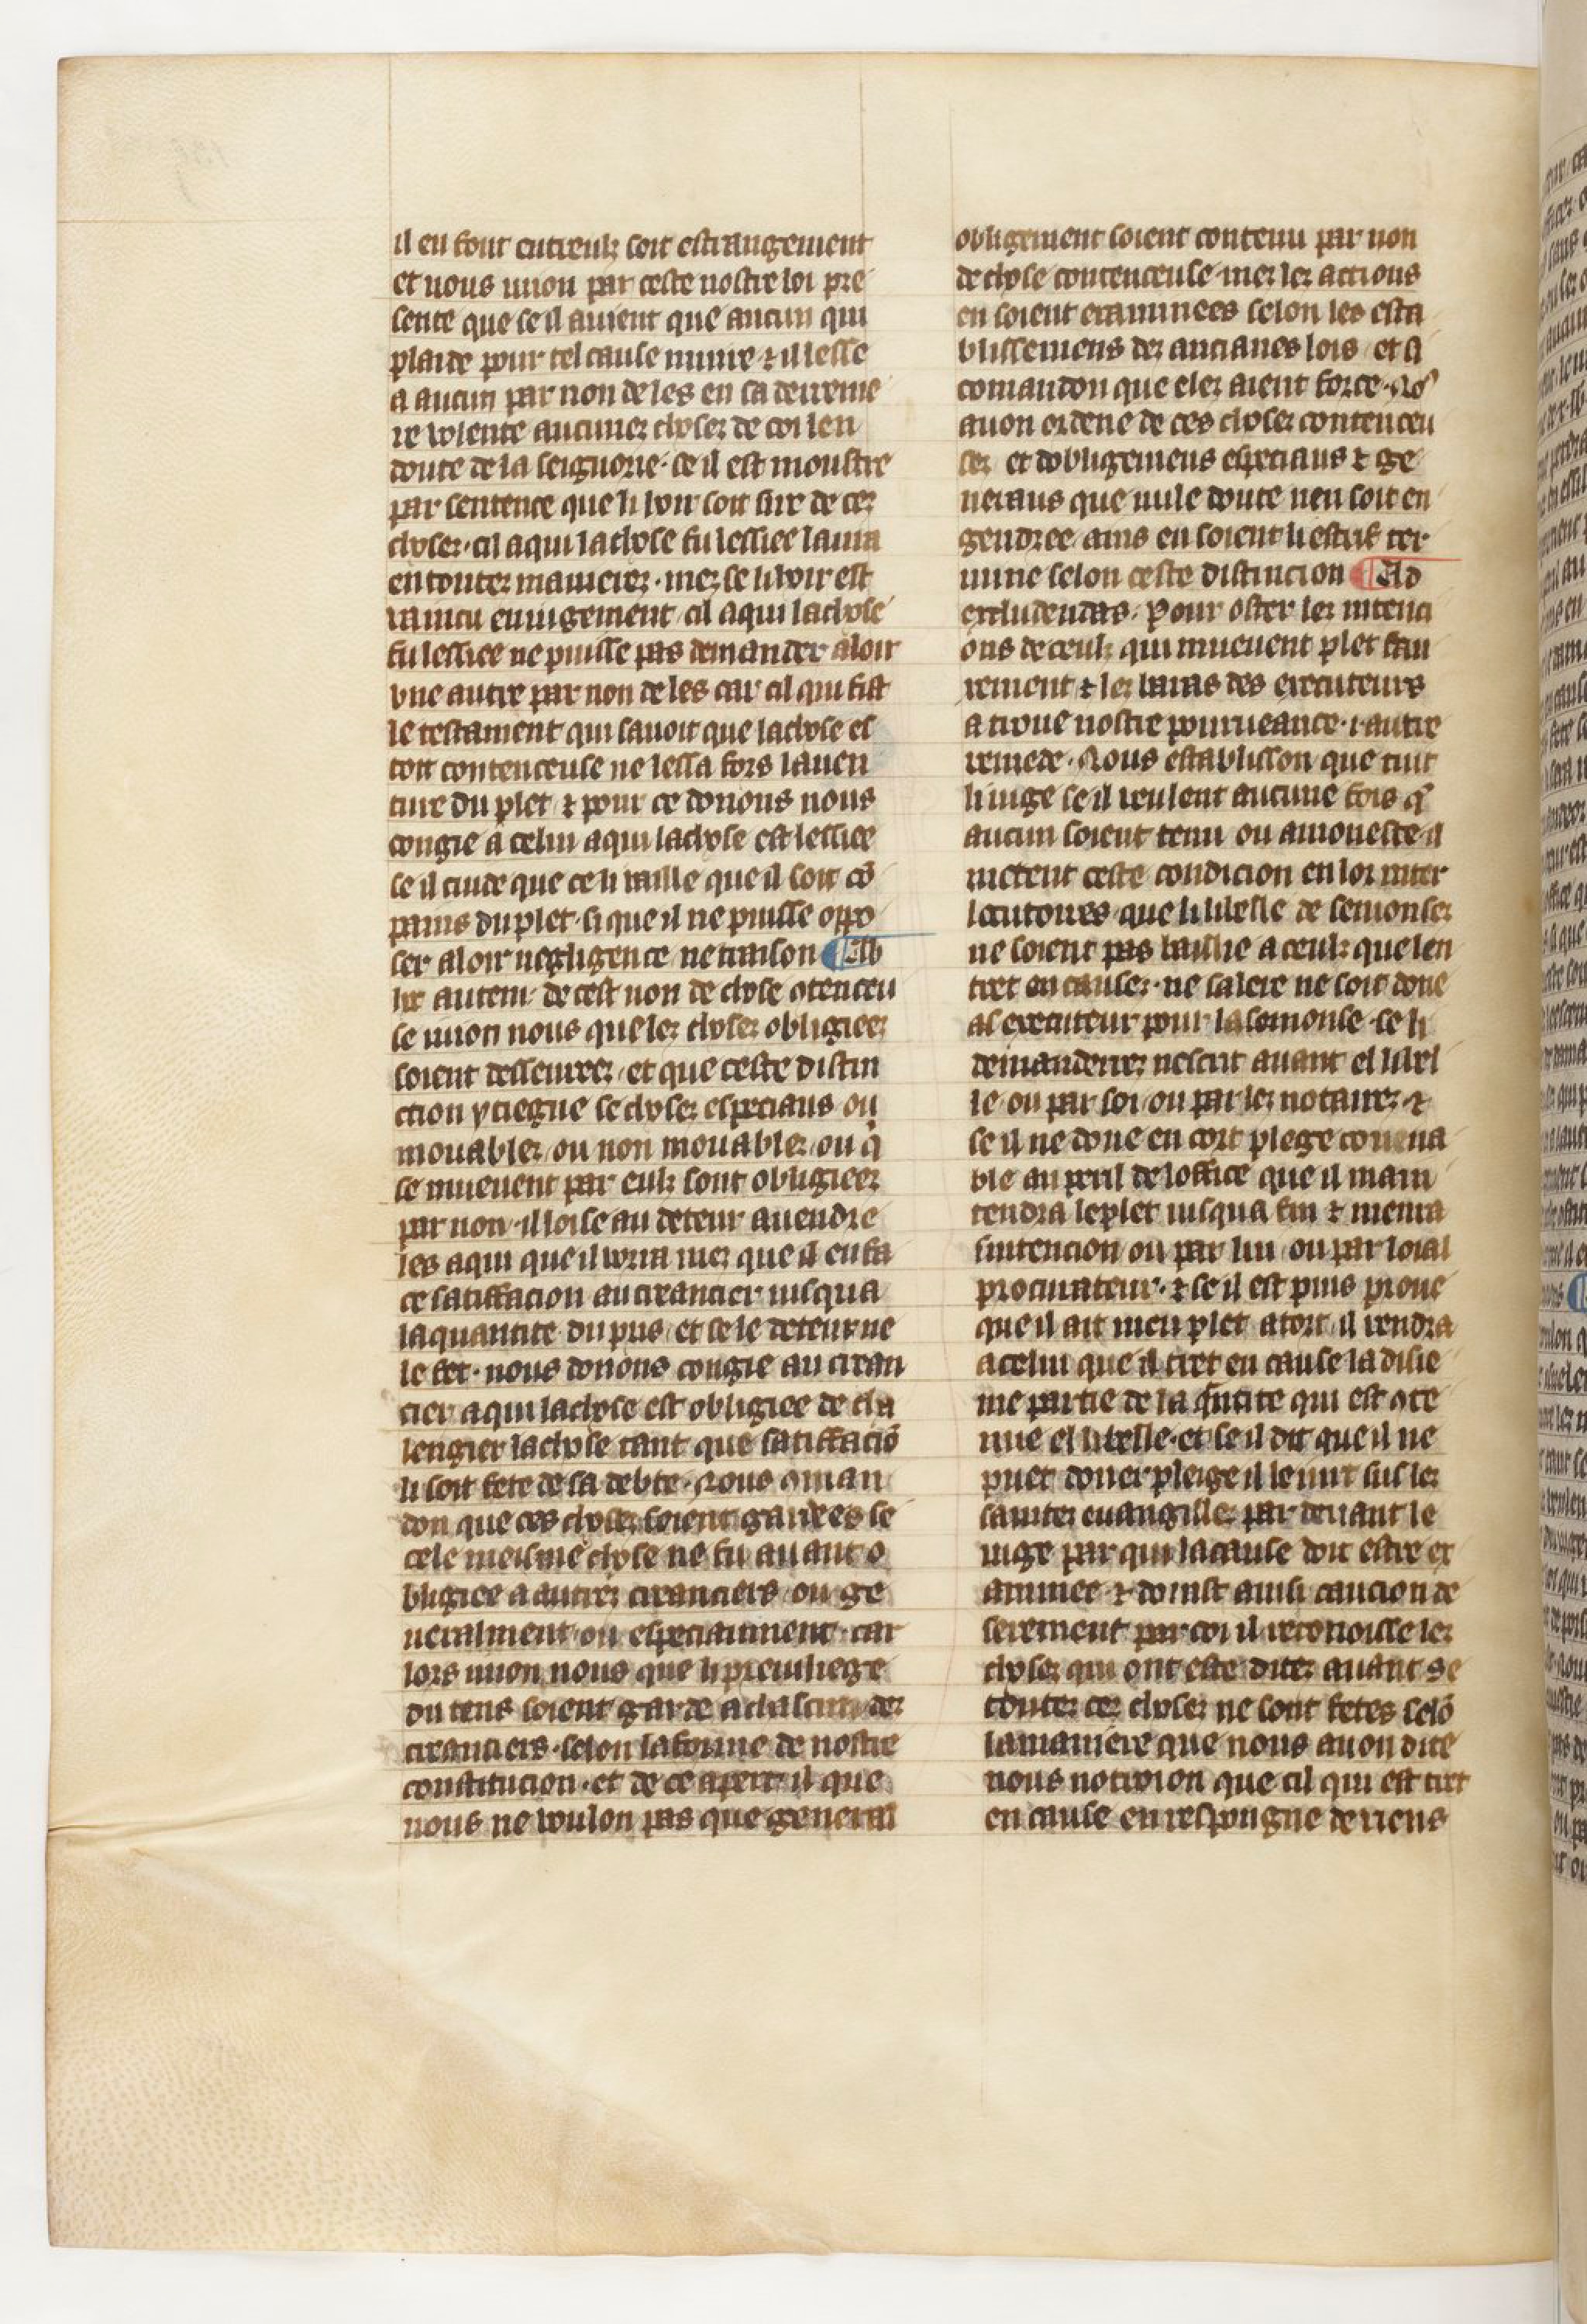 il en font entreulz soit estrangement
et nous uuon par ceste nostre loi pre
sente que se il auient que aucun qui
plaide pour tel cause muire ⁊ il lesse
a aucun par non de les en sa derreniе
re volente aucunez chosez de coi len
doute de la seignorie· se il est moustre
par sentence que li hoir soit sire de cez
chosez· cil a qui la chose fu lessiee laura
en toutez manierez· mez se li hoir est
vaincu en iugement cil a qui la chose
fu lessiee ne puisse pas demander a loir
vne autre par non de les car cil qui fist
le testament qui sauoit que la chose es
toit contenceuse ne lessa fors lauen
ture du plet ⁊ pour ce donons nous
congie a celui a qui la chose est lessiee
se il cuide que ce li vaille que il soit cō
pains du plet· si que il ne puisse oppo
ser a loir negligence ne traison ¶ Ab
hr autem· de cest non de chose ɔtenceu
se uuon nous que lez chosez obligieez
soient desseureez et que ceste distin
ction y tiegne se chosez especiaus ou
mouablez ou non mouablez ou q̇
se mueuent par eulz sont obligieez
par non· il loise au deteur a uendre
les a qui que il vorra mez que il en fa
ce satiffacion au creancier iusqua
la quantite du pris et se le deteur ne
le fet· nous donons congie au crean
cier a qui la chose est obligiee de cha
lengier la chose tant que satiffaciō
li soit fete de sa debte· Nous ɔman
don que ces chosez soient gardees se
cele meisme chose ne fu auant o
bligiee a autrez creanciers ou ge
neralment ou especiaument· car
lors uuon nous que li preuiliege
du tens soient garde a chascun dez
creanciers· selon la forme de nostre
constitucion· et de ce apert il que
nous ne voulon pas que general
obligement soient contenu par non
de chose contenceuse· mez lez actions
en soient examinees selon les esta
blissemens dez ancianes lois et ɔ
comandon que elez aient force· No⁹
auon ordene de ces chosez contenceu
sez et dobligemens especiaus ⁊ ge
neraus que nule doute nen soit en
gendree ains en soient li estrif ter
mine selon ceste distincion ¶ Ad
excludendas· Pour oster lez intenci
ons de ceulz qui mueuent plet fau
xement ⁊ lez baras des executeurs
a troue nostre pourueance· ı· autre
remede· Nous establisson que tuit
li iuge se il veulent aucune fois q̄
aucun soient tenu ou amoneste· il
metent ceste condicion en lor inter
locutoires que li libelle de semonsez
ne soient pas baillie a ceulz que len
tret en causez· ne salere ne soit done
al executeur pour la semonse· se li
demanderrez nescrit auant el libel
le ou par soi ou par lez notairez ⁊
se il ne done en cort plege conuena
ble au peril de loffice que il main
tendra le plet iusqua fin ⁊ menra
sintencion ou par lui ou par loial
procurateur· ⁊ se il est puis proue
que il ait meu plet a tort il rendra
a celui que il tret en cause la disie
me partie de la q̄ntite qui est ɔte
nue el libelle· et se il dit que il ne
puet doner pleige il le iurt sus lez
saintez euangillez par deuant le
iuge par qui la cause doit estre ex
aminee ⁊ doinst ausi caucion de
serement par coi il reconoisse lez
chosez qui ont este ditez auant se
toutez cez chosez ne sont fetes selō
la maniere que nous auon dite
nous notroion que cil qui est tret
en cause en respongne de riens